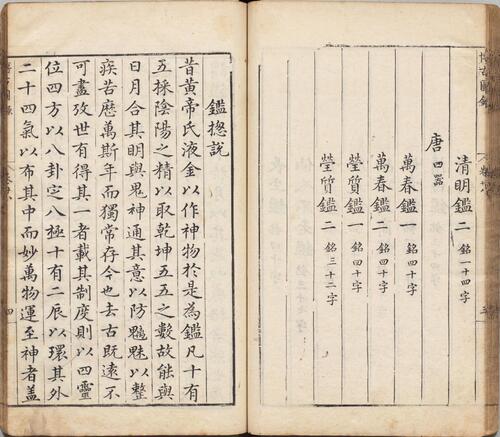 清明鑑二 銘一十四字
唐 四器
萬春鑑一 銘四十字
萬春鑑二 銘四十字
瑩質鑑一 銘四十字
瑩質鑑二 銘三十二字
鑑揔說
昔黃帝氏液金以作神物於是為鑑凡十有
五採陰陽之精以取乾坤五五之數故能與
日月合其明與鬼神通其意以防魑魅以整
疾苦歷萬斯年而獨常存今也去古既遠不
可盡攷世有得其一者載其制度則以四靈
位四方以八卦定八極十有二辰以環其外
二十四氣以布其中而妙萬物運至神者蓋